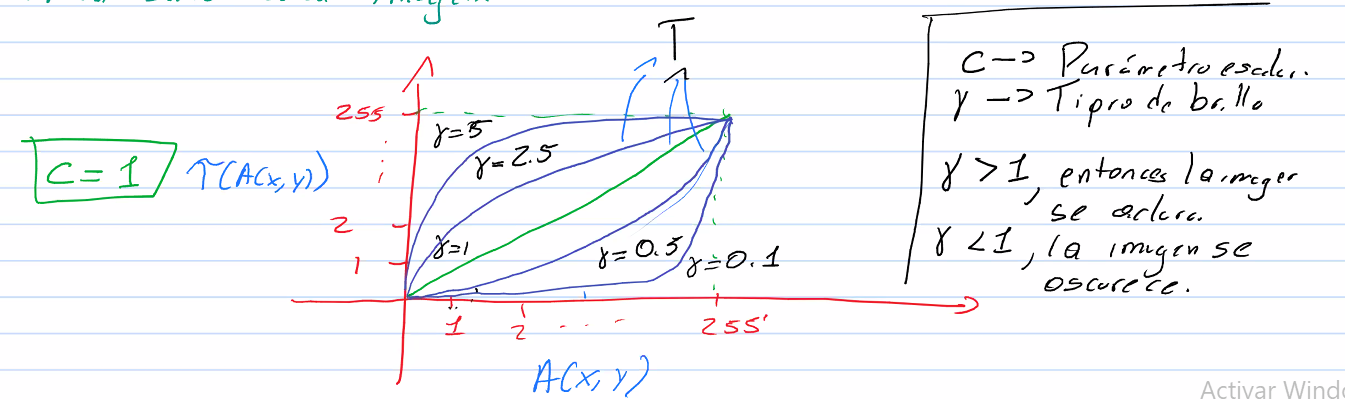 T
255
γ=5
γ=2.5
C = 1
T(A(x,y))
2
1
γ=1
γ=0.5
γ=0.1
1
2
....
255
A(x,y)
C -> Parámetro escalar.
γ -> Tipo de brillo
γ>1, entonces la imagen
se aclara.
γ<1, la imagen se
oscurece.
Activar Windo